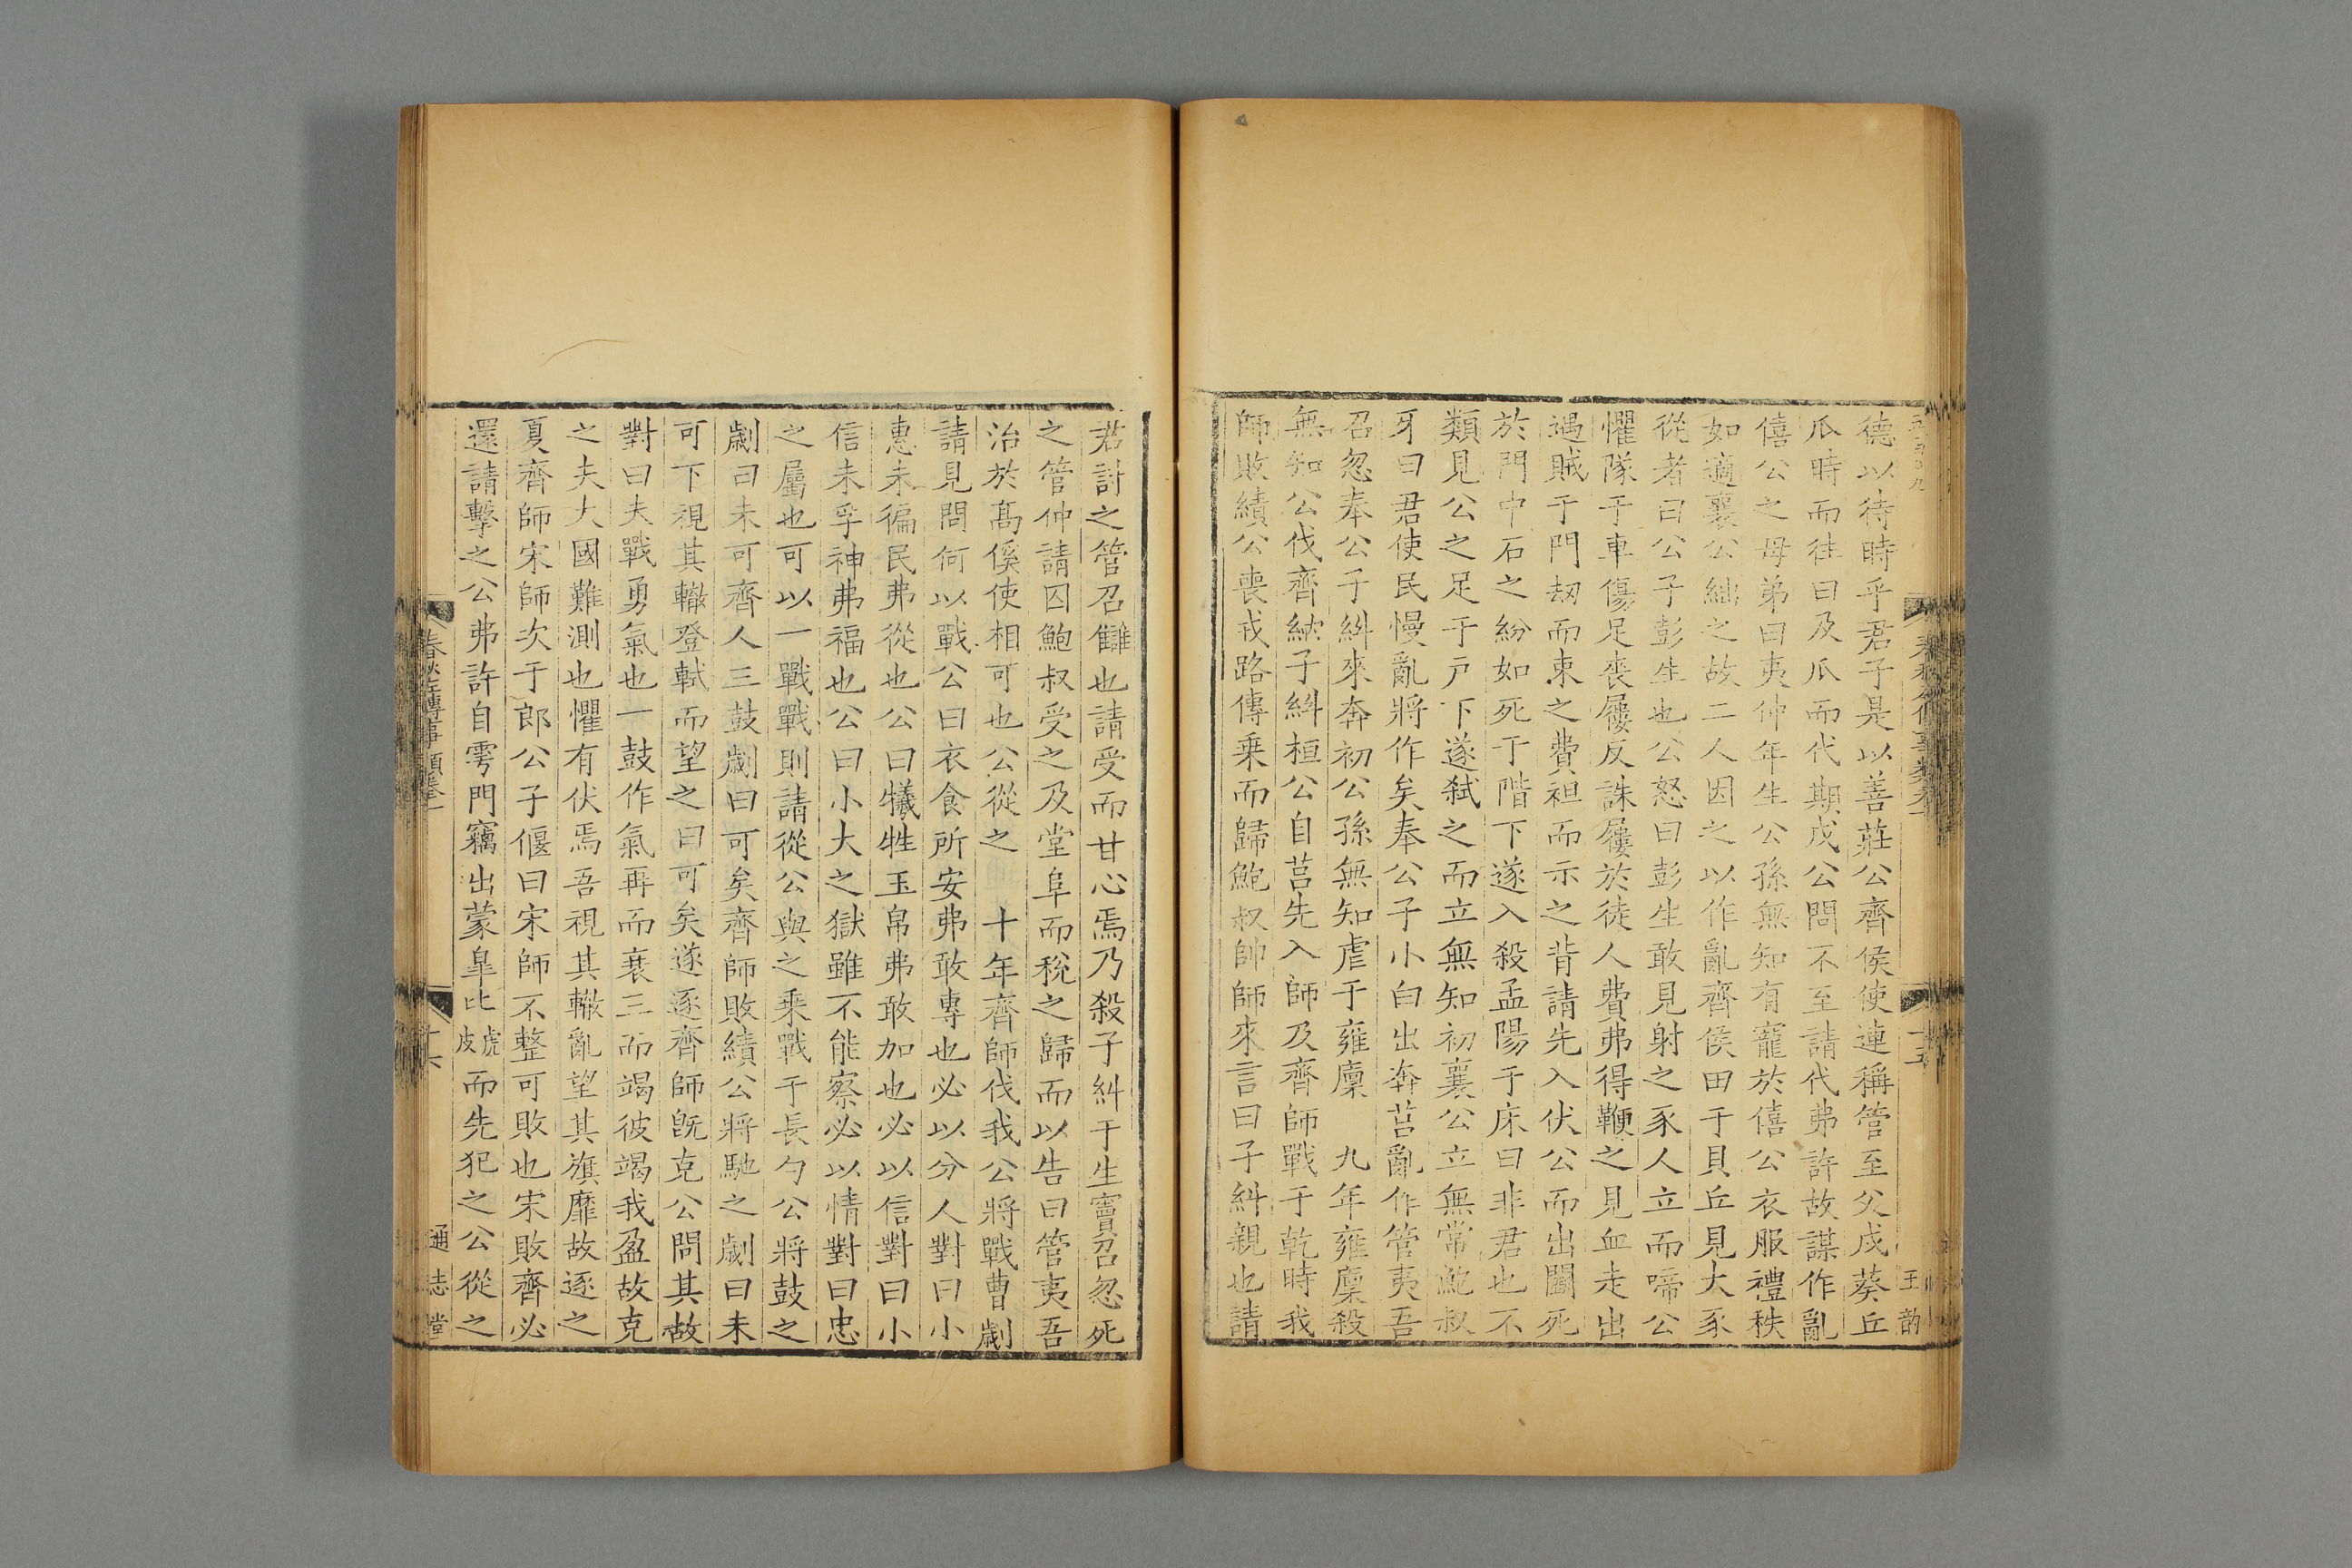 德以待時乎君子是以善莊公齊侯使連稱管至父戍葵丘
瓜時而往曰及瓜而代期戍公問不至請代弗許故謀作亂
僖公之母弟曰夷仲年生公孫無知有寵於僖公衣服禮秩
如適襄公絀之故二人因之以作亂齊侯田于貝丘見大豕
從者曰公子彭生也公怒曰彭生敢見射之豕人立而啼公
懼隊于車傷足喪屨反誅屨於徒人費弗得鞭之見血走出
遇賊于門刼而束之費袒而示之背請先入伏公而出鬭死
於門中石之紛如死于階下遂入殺孟陽于床曰非君也不
類見公之足于戸下遂弑之而立無知初襄公立無常鮑叔
牙曰君使民慢亂將作矣奉公子小白出奔莒亂作管夷吾
召忽奉公子糾來奔初公孫無知虐于雍廩 九年雍廩殺
無知公伐齊納子糾桓公自莒先入師及齊師戰于乾時我
師敗績公喪戎路傳乗而歸鮑叔帥師來言曰子糾親也請
十五
王韵
君討之管召讎也請受而甘心焉乃殺子糾于生竇召忽死
之管仲請囚鮑叔受之及堂阜而稅之歸而以告曰管夷吾
治於髙傒使相可也公從之 十年齊師伐我公將戰曹劌
請見問何以戰公曰衣食所安弗敢專也必以分人對曰小
惠未徧民弗從也公曰犧牲玉帛弗敢加也必以信對曰小
信未孚神弗福也公曰小大之獄雖不能察必以情對曰忠
之屬也可以一戰戰則請從公與之乗戰于長勺公將鼓之
劌曰未可齊人三鼓劌曰可矣齊師敗績公將馳之劌曰未
可下視其轍登軾而望之曰可矣遂逐齊師旣克公問其故
對曰夫戰勇氣也一鼓作氣再而衰三而竭彼竭我盈故克
之夫大國難測也懼有伏焉吾視其轍亂望其旗靡故逐之
夏齊師宋師次于郎公子偃曰宋師不整可敗也宋敗齊必
還請擊之公弗許自雩門竊出蒙臯比虎皮而先犯之公從之
春秋左傳事類卷一
十六
通志堂